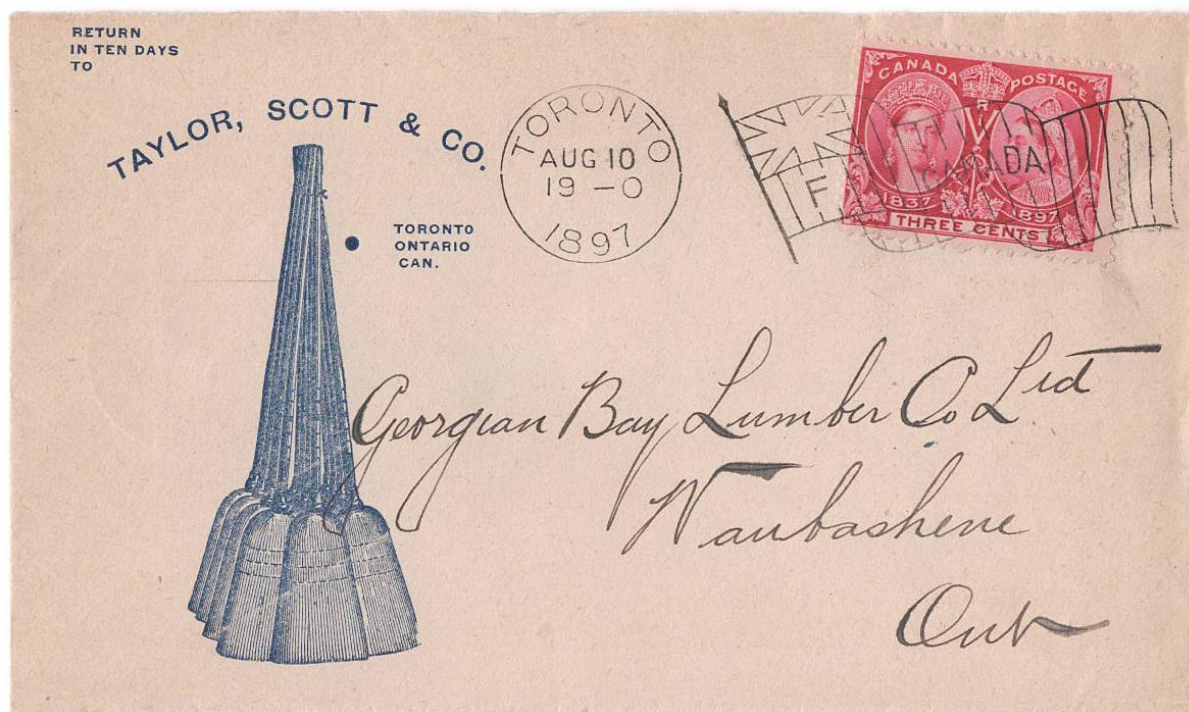 RETURN
IN TEN DAYS
TO
TAYLOR, SCOTT & CO.
TORONTO
ONTARIO
CAN.
TORONTO
AUG 10
19-0
1897
F
CANADA
CANADA POSTAGE
V R I
1837 1897
THREE CENTS
Georgian Bay Lumber Co Ltd
Waubashene
Ont